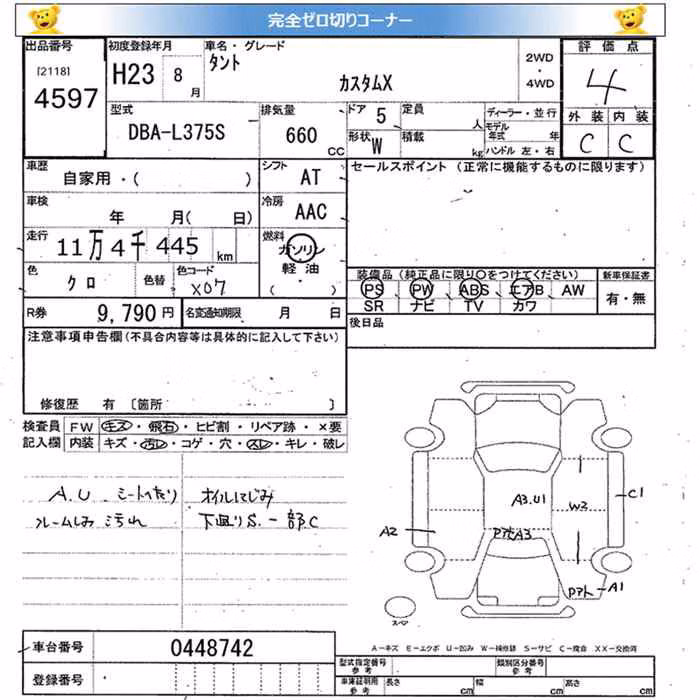 完全ゼロ切りコーナー
出品番号
[2118]
4597
初度登録年月
H23 8 月
車名・グレード
タント
カスタムX
2WD
・
4WD
評価点
4
外装 内装
C C
型式
DBA-L375S
排気量
660 CC
ドア 5
定員 人
形状 W
積載 kg
ディーラー・並行
モデル年式 年
ハンドル 左・右
車歴
自家用・( )
シフト AT
セールスポイント (正常に機能するものに限ります)
車検
年 月( 日)
冷房 AAC
走行
11万4千445 km
燃料
ガソリン
軽油
( ・ )
色
クロ
色替
色コード
X07
装備品 (純正品に限り○をつけてください)
PS PW ABS エアB AW
SR ナビ TV カワ
新車保証書
有・無
R券 9,790円
名変通知期限 月 日
後日品
注意事項申告欄(不具合内容等は具体的に記入して下さい)
修復歴 有 [箇所 ]
検査員記入欄
FW キズ・飛石・ヒビ割・リペア跡・×要
内装 キズ・汚レ・コゲ・穴・スレ・キレ・破レ
A.U. シートへたり
ルームしみ 汚れ
オイルにじみ
下廻りS.一部C
A3.U1
C1
W2
A2
Pアト A3
Pアト A1
スペア
A-キズ E-エクボ U-凹み W-補修跡 S-サビ C-腐食 XX-交換済
車台番号 0448742
登録番号
型式指定番号
参考
類別区分番号
参考
車庫証明用
参考
長さ cm 幅 cm 高さ cm